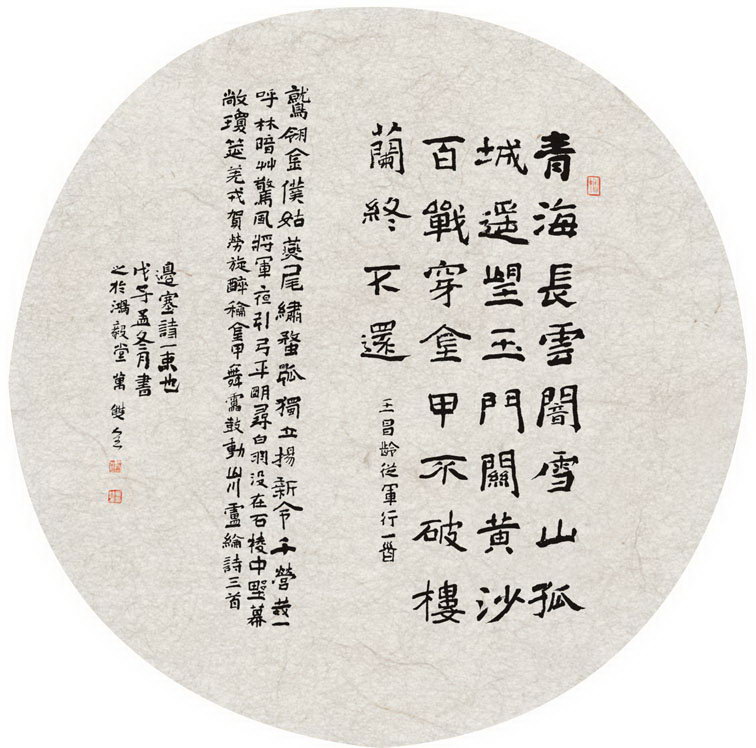 青海長雲闇雪山孤
城遥望玉門關黄沙
百戰穿金甲不破樓
蘭終不還
王昌齡從軍行一首
鷲翎金僕姑燕尾繡蝥弧獨立揚新令千營共一
呼林暗艸驚風將軍夜引弓平明尋白羽没在石棱中野幕
敞瓊筵羌戎賀勞旋醉和金甲舞雷鼓動山川盧綸詩三首
邊塞詩一束也
戊子孟冬月書
之於鴻毅堂萬雙全